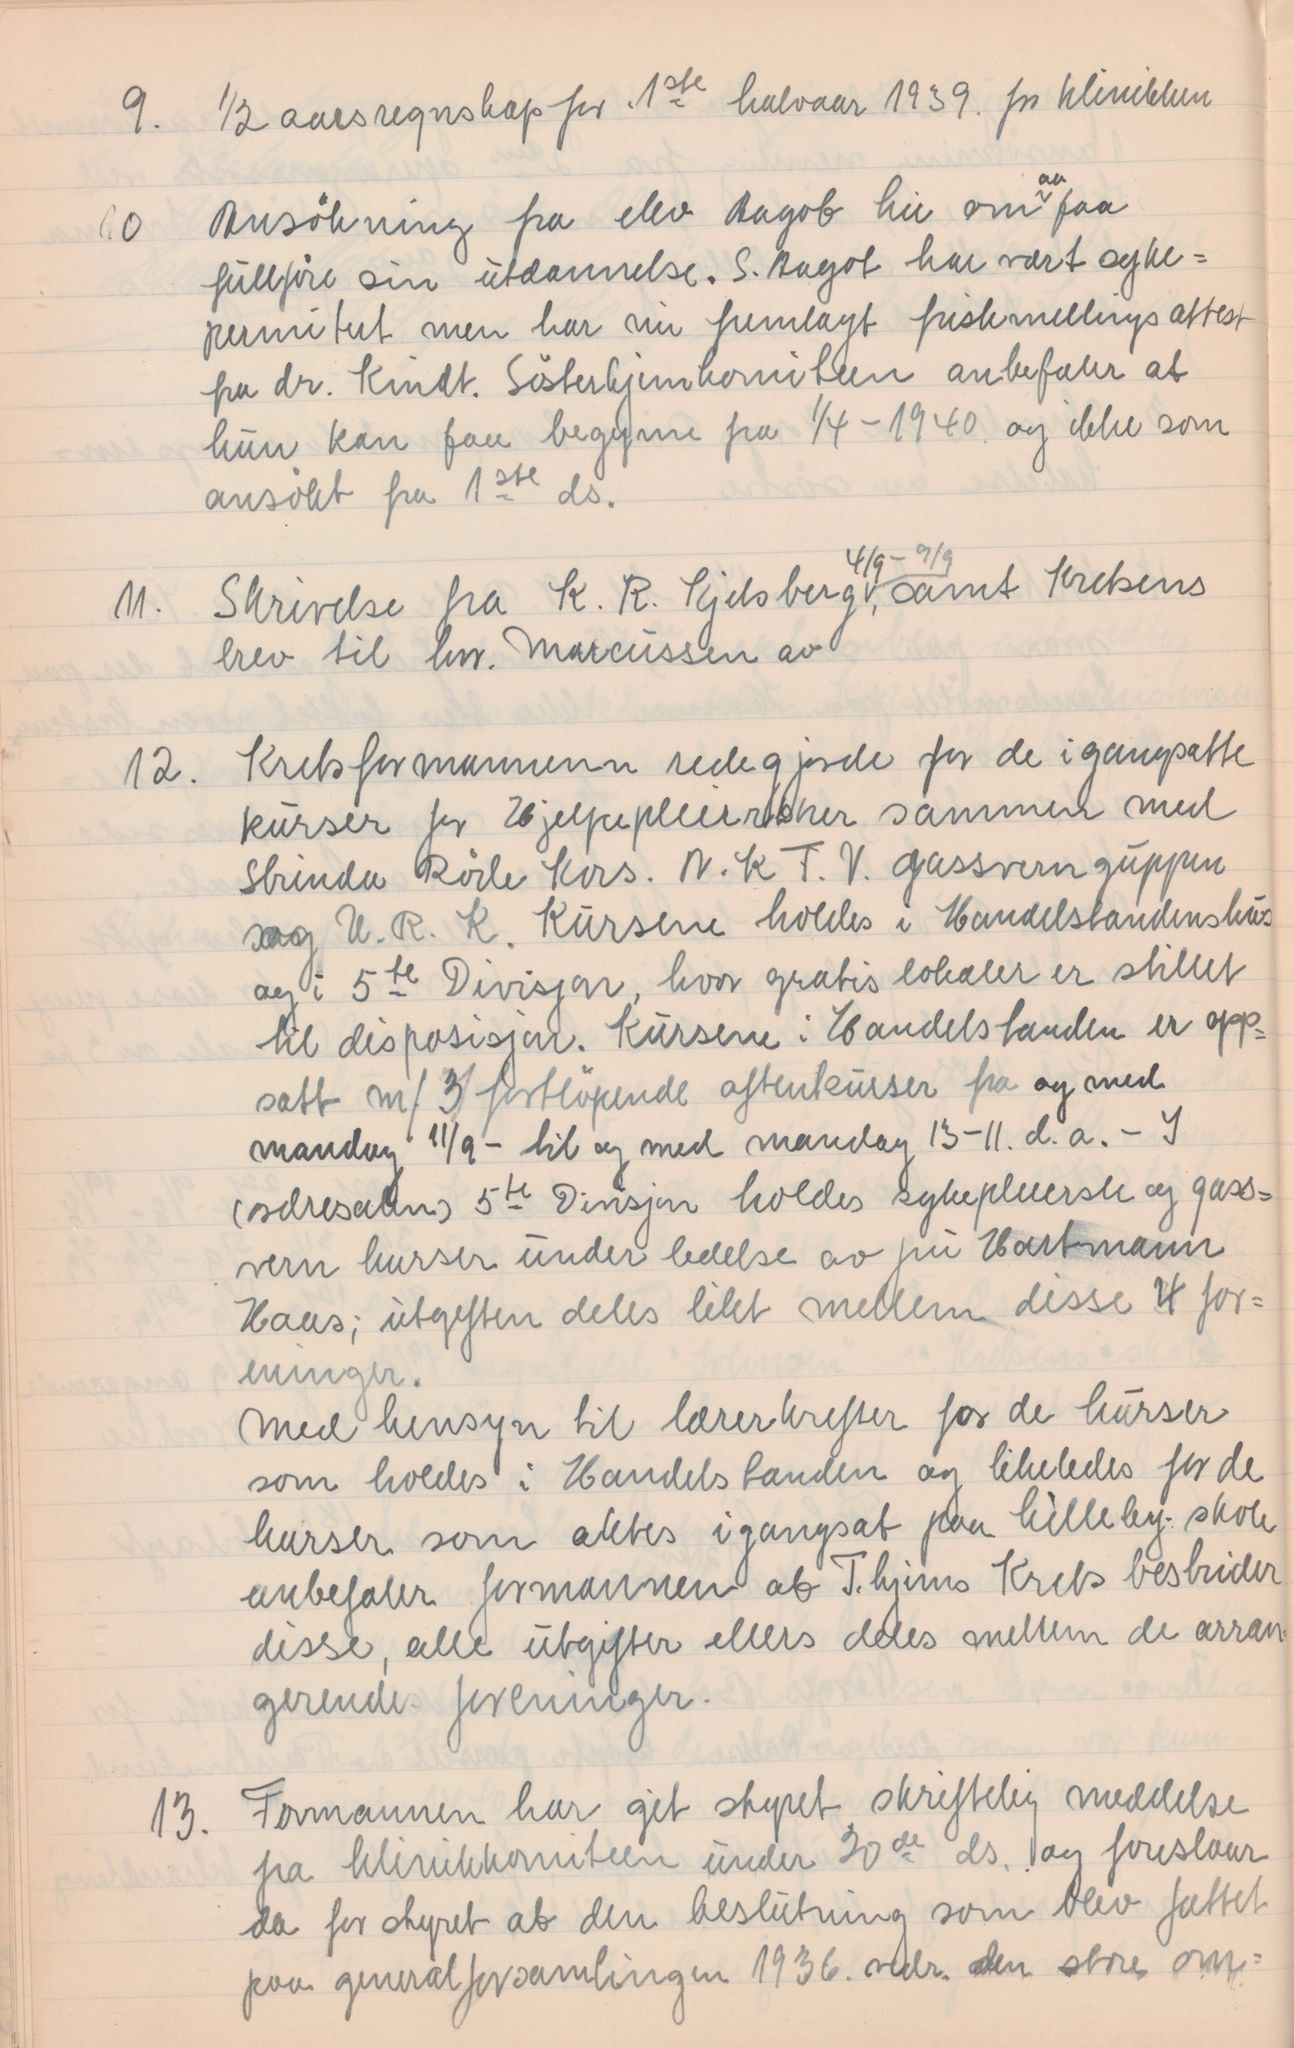 9. 1/2 aarsregnskap for 1ste halvaar 1939. for klinikken
10 Ansökning fra elev Aagot hie om aa faa
fullföre sin utdannelse. S. Aagot har vært syke=
permitert men har nu fremlagt friskmellingsattest
fra dr. Kindt. Sösterhjemkomiteen anbefaler at
hun kan faa begynne fra 1/4-1940 og ikke som
ansökt fra 1ste ds.
11. Skrivelse fra K. R. Kjelsberg 4/9 - 9/9, samt Kretsens
brev til hr. Marcussen av
12. Kretsformannenn redegjorde for de igangsatte
kurser for Hjelpepleiersker sammen med
Strinda Röde Kors. N.K.T.V. gassverngruppen
og U.R.K. Kursene holdes i Handelstandenshus
og i 5te Divisjon, hvor gratis lokaler er stillet
til disposisjon. Kursene i Handelstanden er opp=
satt m/ 3 fortlöpende aftenkurser fra og med
mandag 11/9 - til og med mandag 13-11. d.a. - I
(ordresalen) 5te Divisjon holdes sykepleierske og gass=
vern kurser under ledelse av fru Hartmann
Haas; utgiften deles likt mellem disse 4 for=
eninger.
Med hensyn til lærerkrefter for de kurser
som holdes i Handelstanden og likeledes for de
kurser som aktes igangsat paa Lilleby skole
anbefaler formannen at T.hjems Krets bestrider
disse, alle utgifter ellers deles mellem de arran=
gerende foreninger.
13. Formannen har git styret skriftelig meddelse
fra klinikkomiteen under 30de ds. og foreslaar
da for styret at den beslutning som blev fattet
paa generalforsamlingen 1936. vedr. den store om=